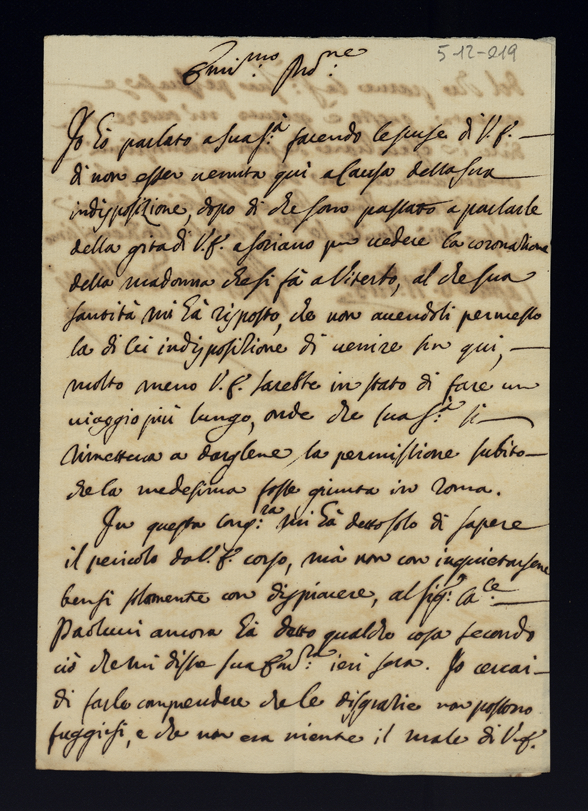 5-12-219
Emi.mo Prõne:
Io hò parlato a sua S.à facendo le scuse di V.E.
di non esser venuta qui a causa della sua
indisposizione, dopo di che sono passato a parlarle
della gita di V.E. a soriano per vedere la coronatione
della madonna che si fà a Viterbo, al che sua
santità mi hà risposto, che non avendoli permesso
la di lei indisposizione di venire sin qui,
molto meno V.E. sarebbe in stato di fare un
viaggio più lungo, onde che sua S.à si
rimetteva a darglene la permissione subito
che la medesima fosse giunta in roma.
In questa cong.ra mi hà detto solo di sapere
il pericolo da V.E. corso, mà non con inquietarsene
bensi solamente con dispiacere, al sig.r Ca.ce
Paolucci ancora hà detto qualche cosa secondo
ciò che mi disse sua Em.za ieri sera. Io cercai
di farle comprendere che le disgratie non possono
fuggirsi, e che non era niente il male di V.E.